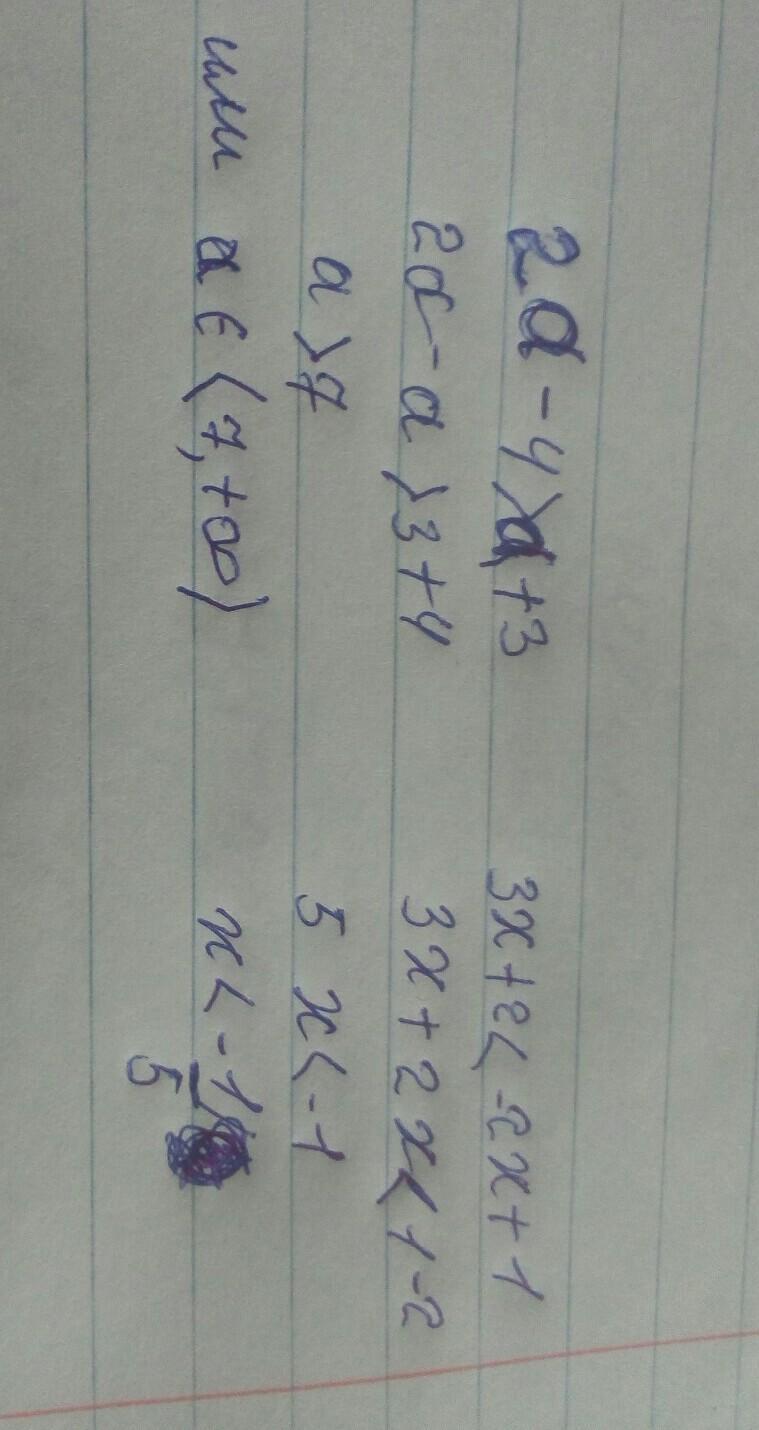 2a - 4 > a + 3
2a - a > 3 + 4
a > 7
или a ∈ (7, +∞)
3x + 2 < -2x + 1
3x + 2x < 1 - 2
5x < -1
x < -1/5